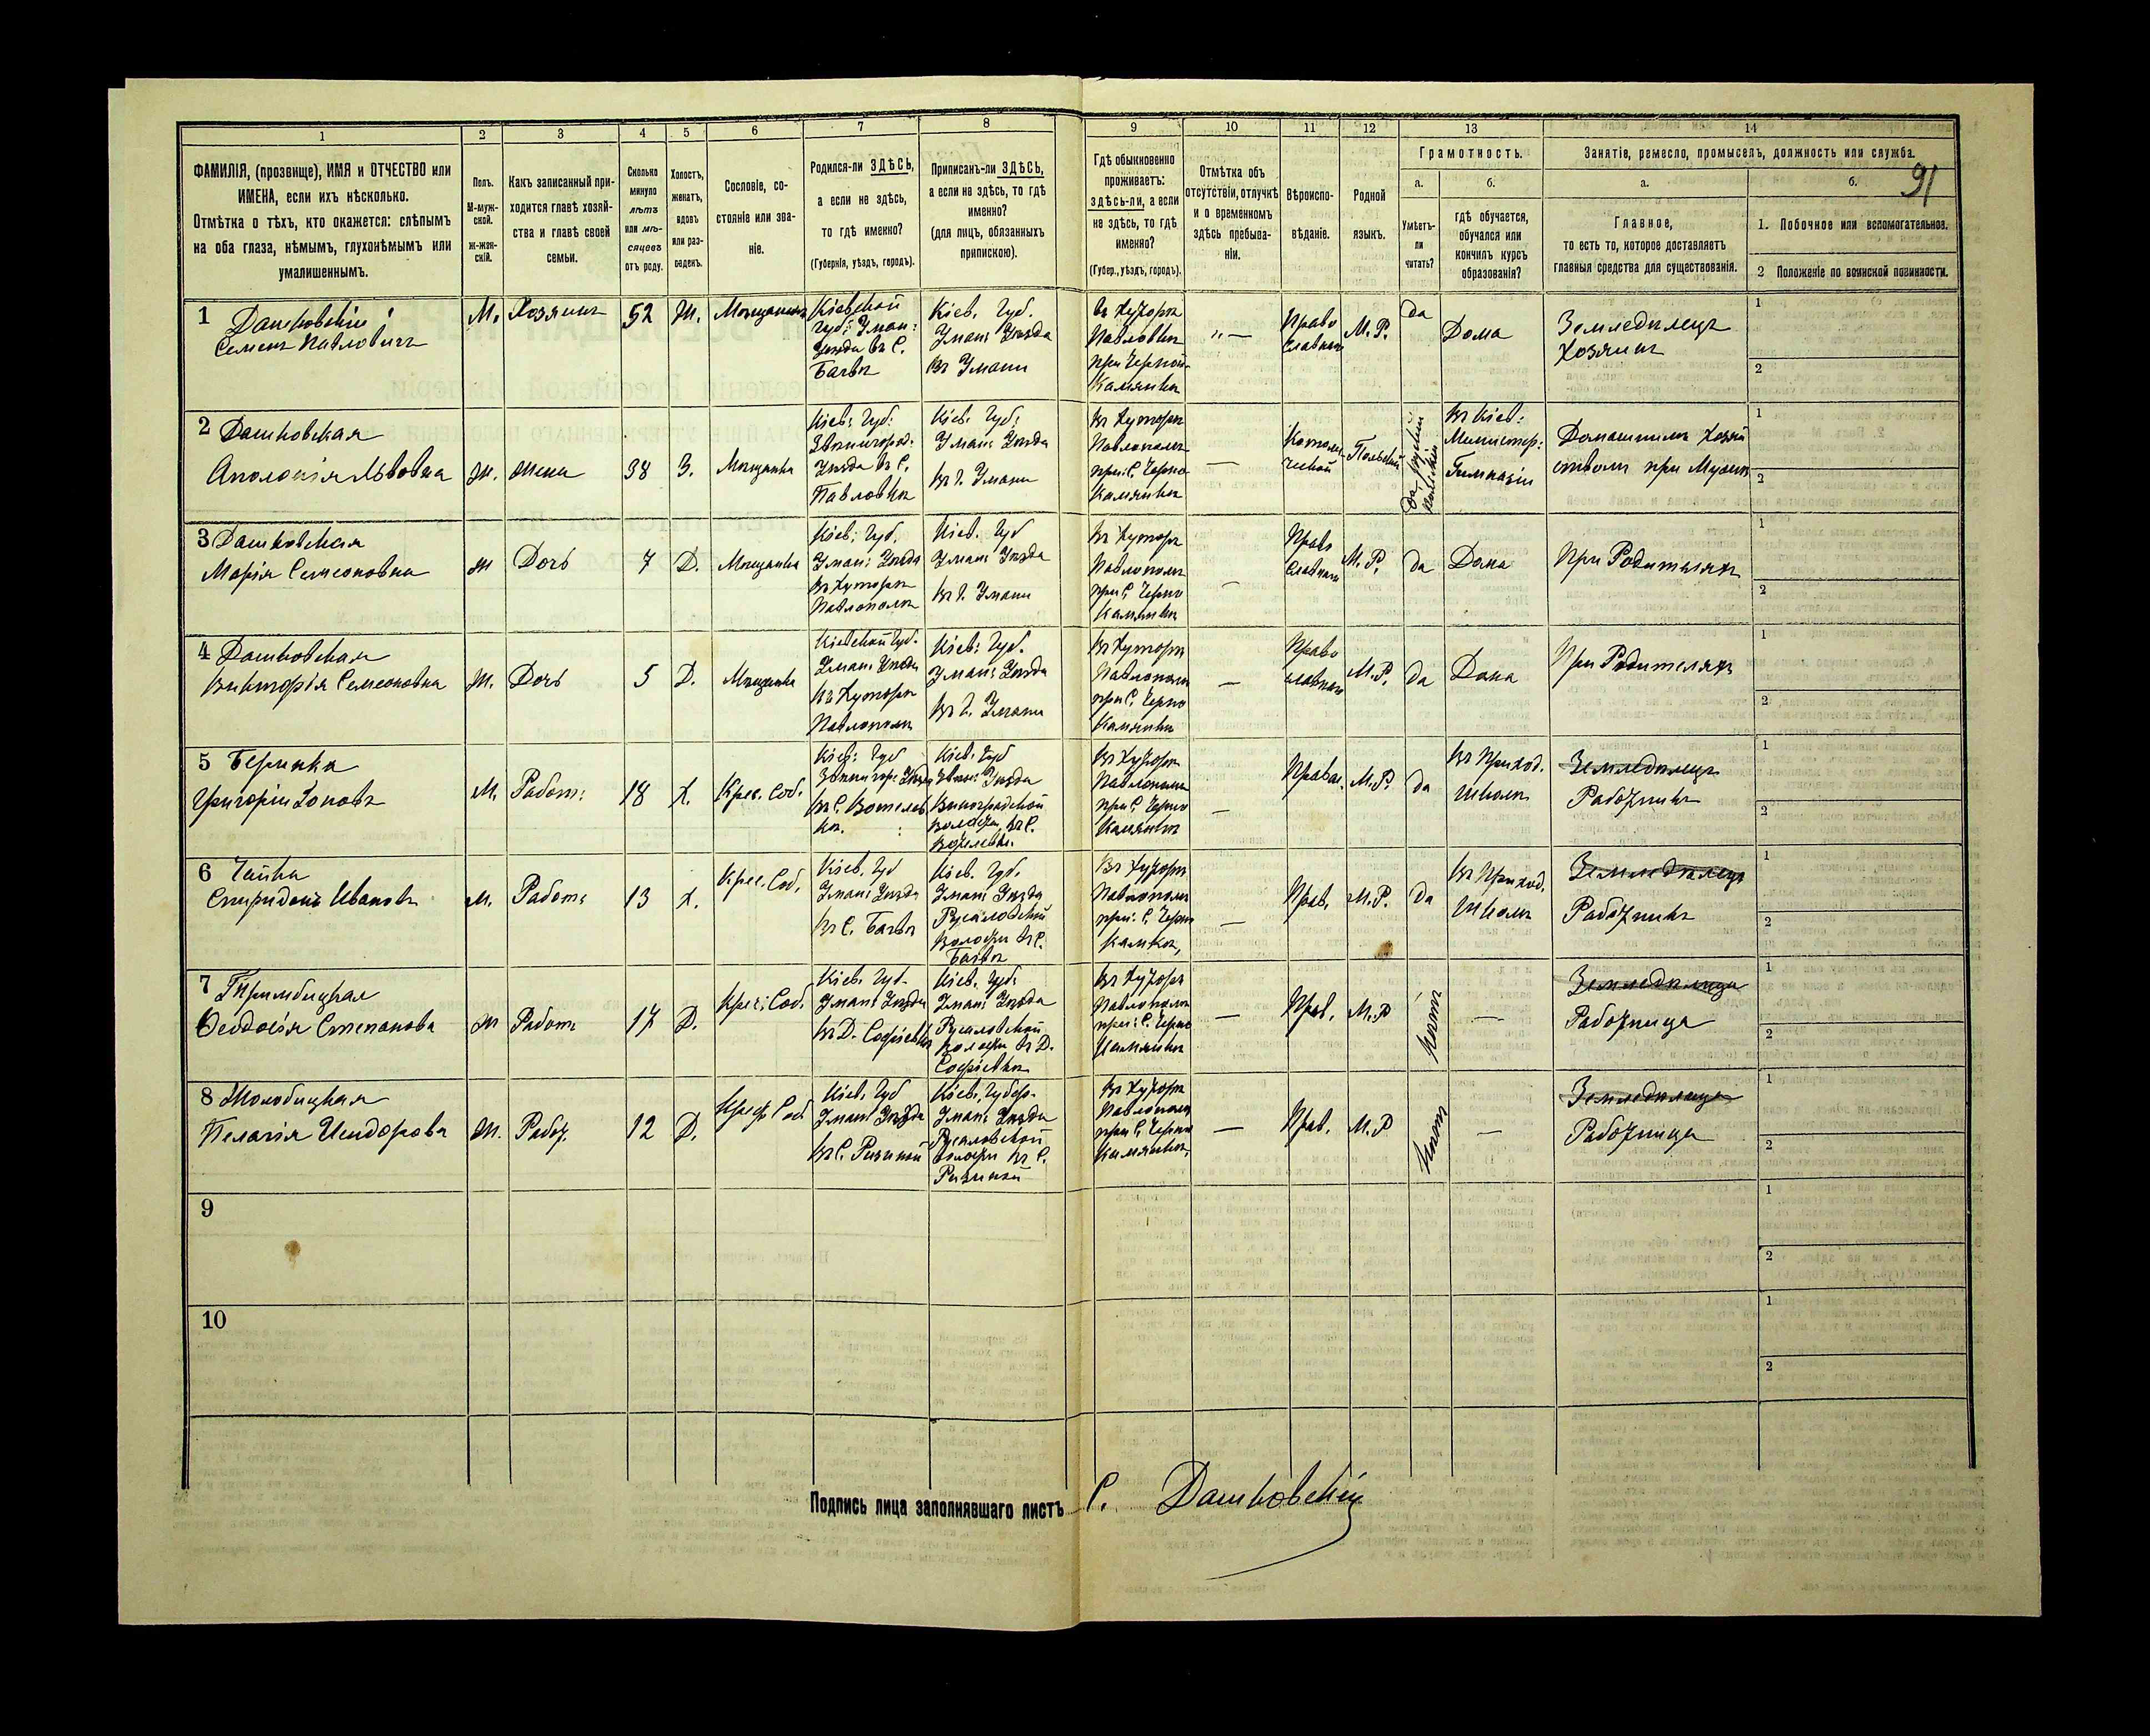 1 2 3 4 5 6 7 8 9 10 11 12 13 14
ФАМИЛІЯ, (прозвище), ИМЯ и ОТЧЕСТВО или
ИМЕНА, если ихъ нѣсколько.
Отмѣтка о тѣхъ, кто окажется: слѣпымъ
на оба глаза, нѣмымъ, глухонѣмымъ или
умалишеннымъ.
Полъ.
М-муж-
ской.
Ж-жен-
скій.
Какъ записанный при-
ходится главѣ хозяй-
ства и главѣ своей
семьи.
Сколько
минуло
лѣтъ
или мѣ-
сяцевъ
отъ роду.
Холостъ,
женатъ,
вдовъ
или раз-
веденъ.
Сословіе, со-
стояніе или зва-
ніе.
Родился-ли ЗДѢСЬ,
а если не здѣсь,
то гдѣ именно?
(Губернія, уѣздъ, городъ).
Приписанъ-ли ЗДѢСЬ,
а если не здѣсь, то гдѣ
именно?
(для лицъ, обязанныхъ
припискою).
Гдѣ обыкновенно
проживаетъ:
здѣсь-ли, а если
не здѣсь, то гдѣ
именно?
(Губер., уѣздъ, городъ).
Отмѣтка объ
отсутствіи, отлучкѣ
и о временномъ
здѣсь пребыва-
ніи.
Вѣроиспо-
вѣданіе.
Родной
языкъ.
Грамотность.
а.
Умѣетъ-
ли
читать?
б.
гдѣ обучается,
обучался или
кончилъ курсъ
образованія?
Занятіе, ремесло, промыселъ, должность или служба.
91
а.
Главное,
то есть то, которое доставляетъ
главныя средства для существованія.
б.
1. Побочное или вспомогательное.
2 Положеніе по воинской повинности.
1 Дашковскій
Семенъ Павловичъ
М. Хозяинъ 52 Ж. Мѣщанинъ
Кіевской
губ: Уман:
уѣзда въ С.
Багвѣ
Кіев. Губ.
Уман: Уѣзда
въ Умани
въ Хуторѣ
при Черной
Камянкѣ
"—
Право
славнаго
М. Р.
да
Дома
Земледѣлецъ
Хозяинъ
1
2
2 Дашковская
Аполонія Львовна
Ж. Жена 38 З. Мѣщанка
Кіев: Губ:
Звенигород:
Уѣзда въ С.
Павловкѣ
Кіев: Губ:
Уман: Уѣзда
въ г. Умани
въ Хуторѣ
Павлополѣ
при: С. Черно
Камянкѣ
—
Католи
ческой
Польскій
въ Кіев:
Министер:
Гимназіи
Домашнимъ Хозяй
ствомъ при Мужѣ
1
2
3 Дашковская
Марія Семеоновна
Ж Дочь 7 Д. Мѣщанка
Кіев: Губ.
Уман: Уѣзда
въ Хуторѣ
Павлополѣ
Кіев. Губ
Уман: Уѣзда
въ г. Умани
въ Хуторѣ
Павлополѣ
при С. Черно
Камянкѣ
—
Право
славнаго
М. Р.
да
Дома
При Родителяхъ
1
2
4 Дашковская
Викторія Семеоновна
Ж. Дочь 5 Д. Мѣщанка
Кіевской Губ.
Уман: Уѣзда
въ Хуторѣ
Павлополѣ
Кіев: Губ.
Уман: Уѣзда
въ г. Умани
въ Хуторѣ
Павлополѣ
при С. Черно
Камянкѣ
—
Право
славнаго
М. Р.
да
Дома
При Родителяхъ
1
2
5
Григорій
М. Работ: 18 Х. Крес. Соб.
Кіев: Губ
Звенигор: Уѣзда
въ С.
Кіев: Губ
Звен: Уѣзда
въ Хуторѣ
Павлополѣ
при С. Черно
Камянкѣ
—
Правос.
М. Р.
да
въ Приход.
Школѣ
Земледѣлецъ
Работникъ
1
2
6 Чайка
Спиридонъ Ивановъ
М. Работ: 13 Х. Крес. Соб.
Кіев. Губ
Уман: Уѣзда
въ С. Багвѣ
Кіев. Губ.
Уман: Уѣзда
Русаловской
Волости въ С.
Багвѣ
въ Хуторѣ
Павлополѣ
при: С. Черно
—
Прав.
М. Р.
да
въ Приход.
Школѣ
Земледѣлецъ
Работникъ
1
2
7
Феодосія Степанова
Ж Работ: 17 Д. Крес: Соб.
Кіев. Губ.
Уман: Уѣзда
въ Д. Софіевкѣ
Кіев. Губ.
Уман: Уѣзда
Русаловской
Волости въ Д.
Софіевкѣ
въ Хуторѣ
Павлополѣ
при: С. Черно
Камянкѣ
—
Прав.
М. Р
Нѣтъ
—
Земледѣлица
Работница
1
2
8
Пелагія Исидорова
Ж. Работ. 12 Д.
Кіев. Губ
Уман: Уѣзда
въ С. Ризиной
Кіев. Губер.
Уман: Уѣзда
Русаловской
Волости въ С.
Ризиной
въ Хуторѣ
Павлополѣ
при С. Черно
Камянкѣ
—
Прав.
М. Р
Нѣтъ
—
Земледѣлица
Работница
1
2
9
1
2
10
1
2
Подпись лица заполнявшаго листъ С. Дашковскій